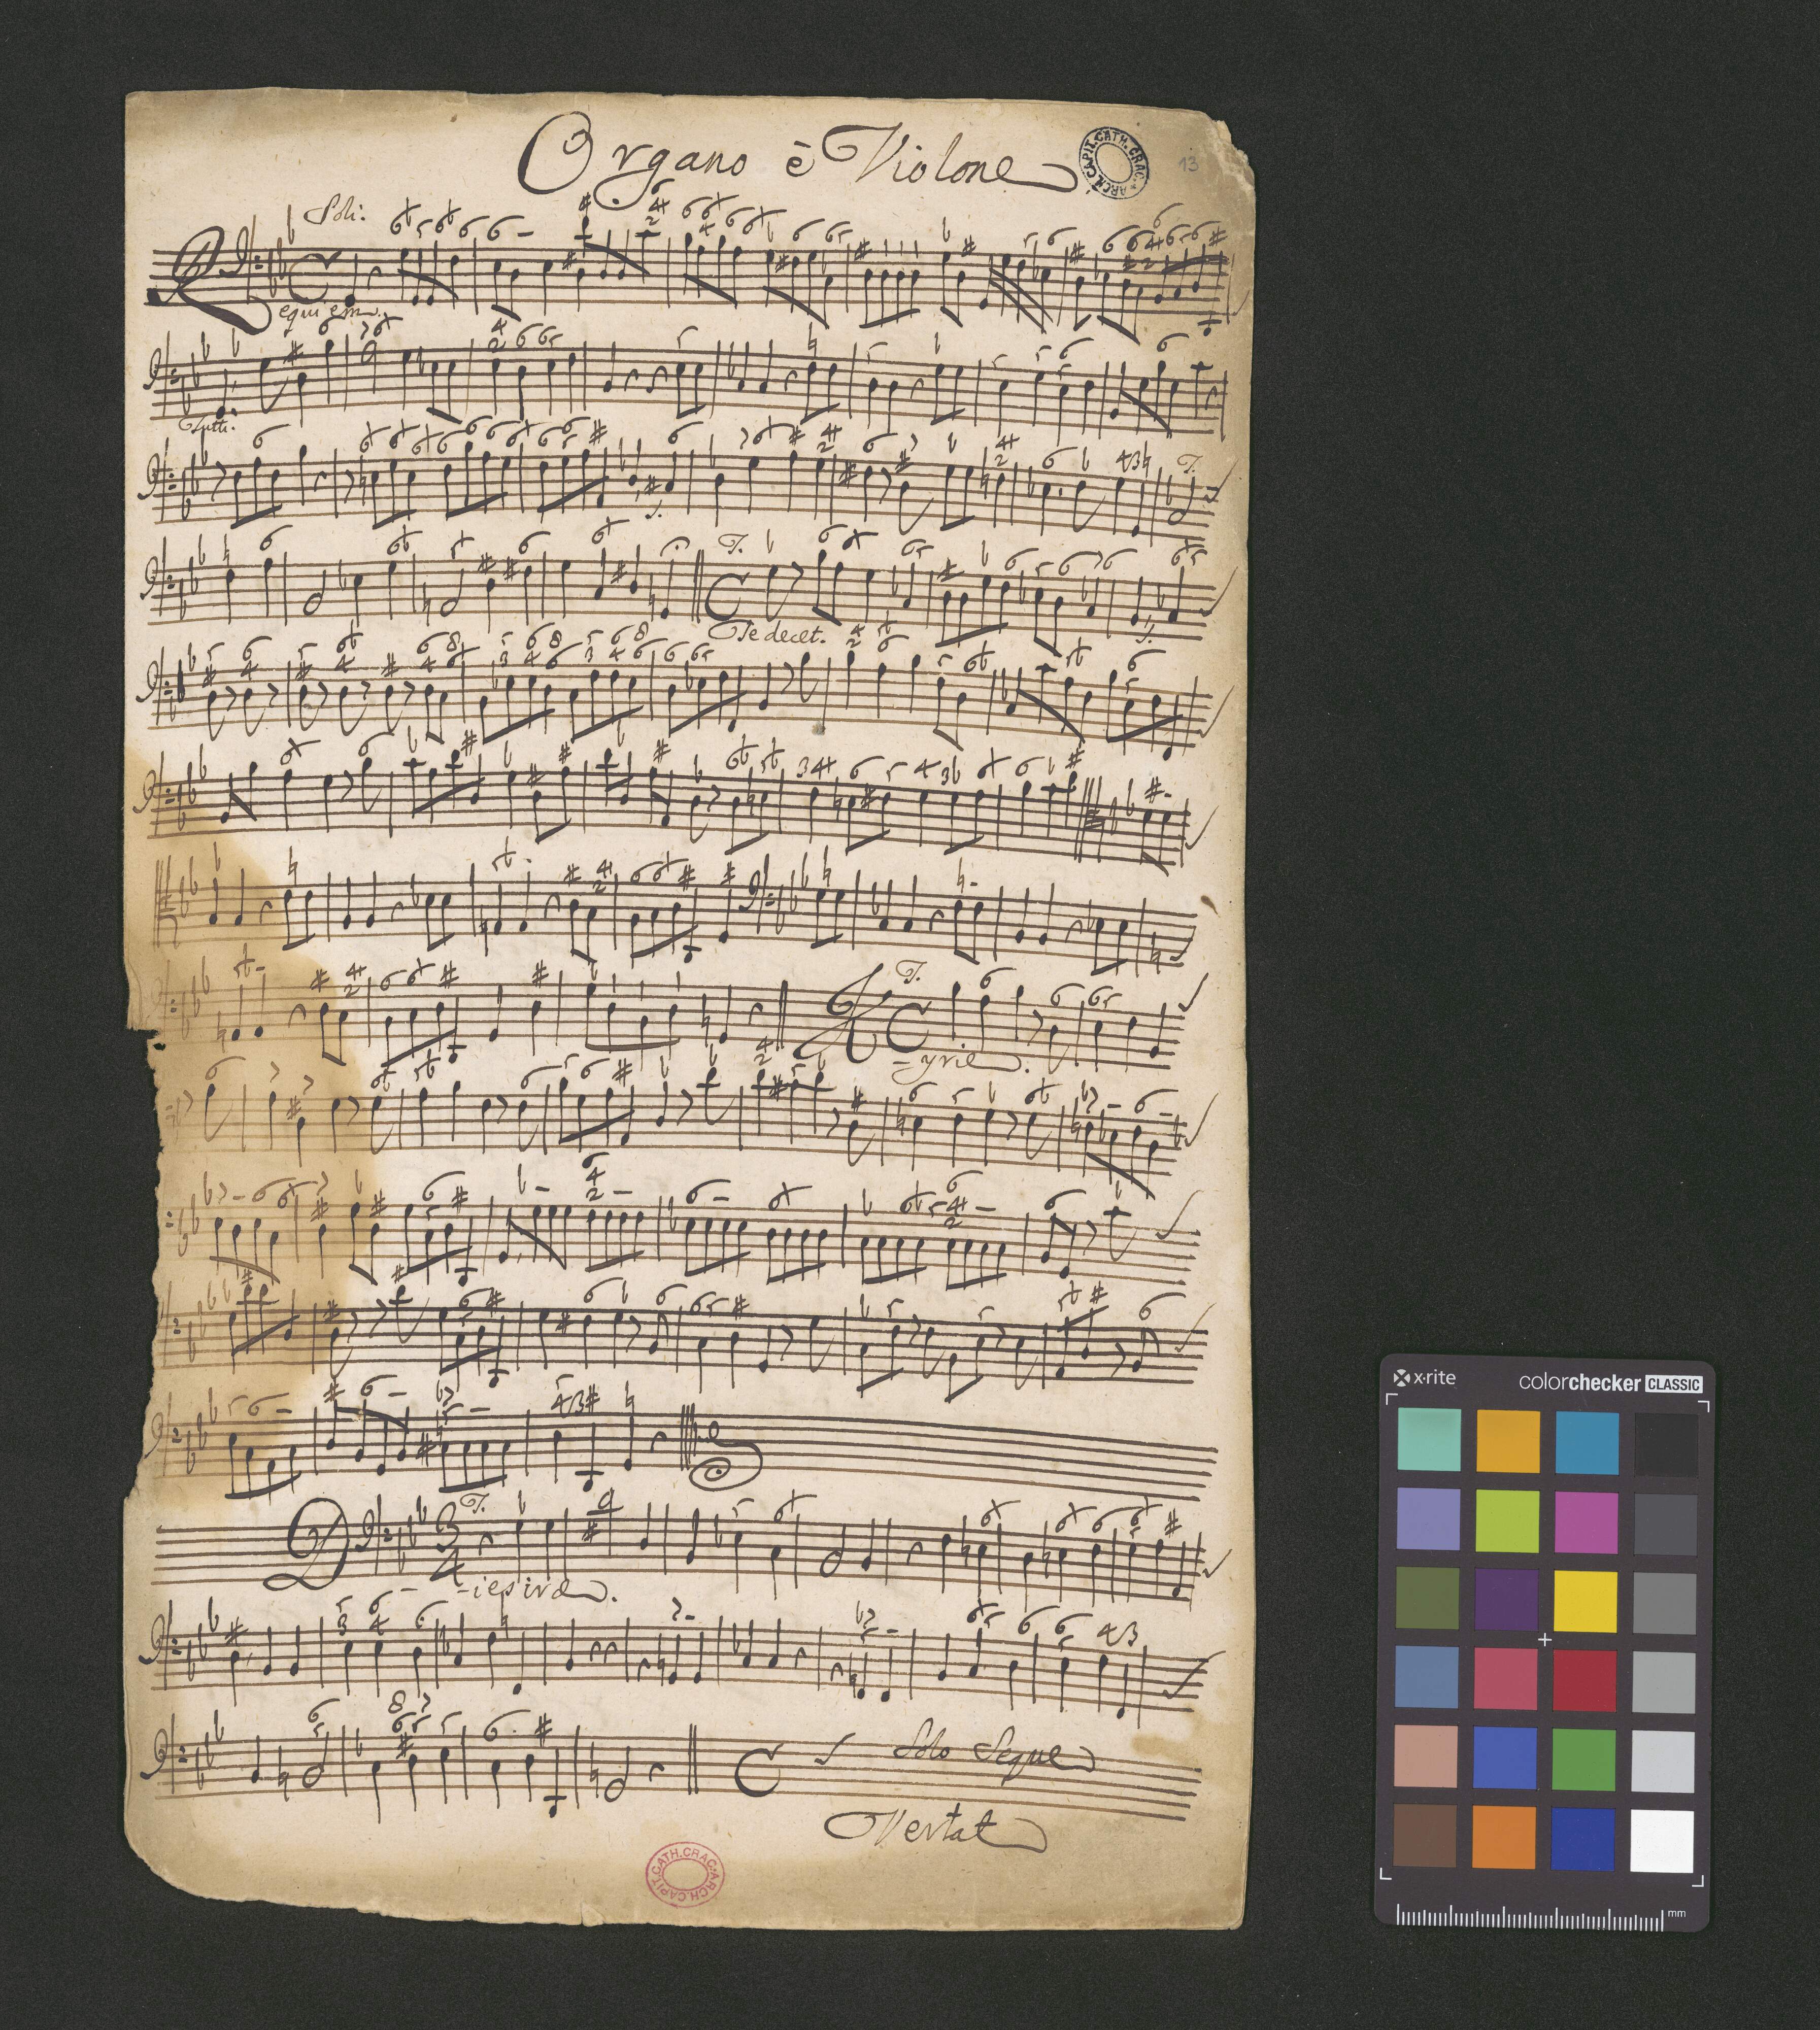 Organo è Violone
ARCH. CAPIT. CATH. CRAC.
13
Soli:
Requiem.
Tutti:
T.
T.
Te decet.
T.
Kyrie.
T.
Dies iræ.
Solo Seque
Vertat
ARCH. CAPIT. CATH. CRAC.
x-rite
colorchecker CLASSIC
mm